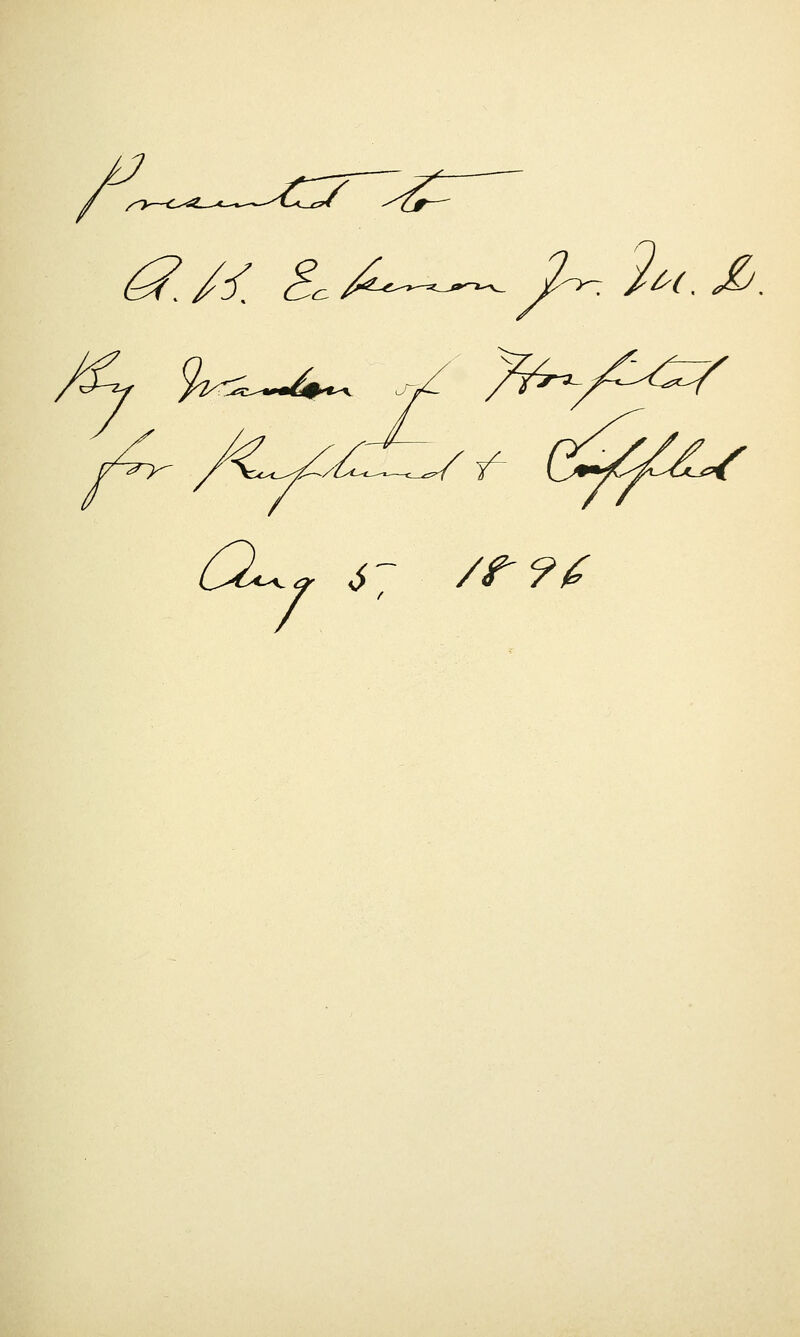 Presented to
A. B. Eckerson Jr. M. D.
By Warden of Hospital
for Ruptured & Crippled
Aug 5, 1896